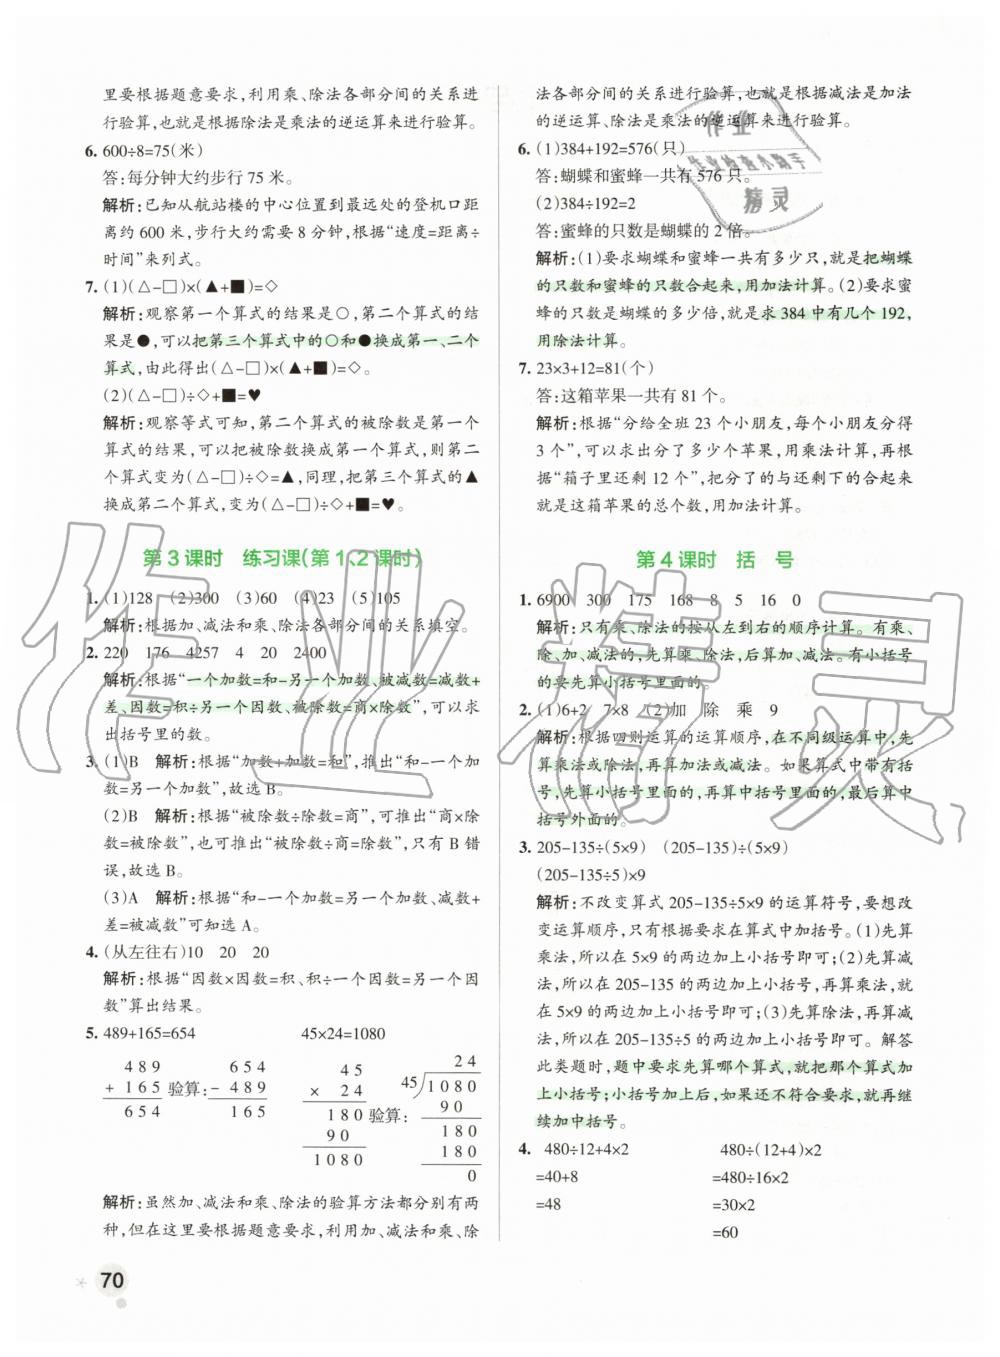 里要根据题意要求,利用乘、除法各部分间的关系进
行验算,也就是根据除法是乘法的逆运算来进行验算。
6. 600÷8=75(米)
答:每分钟大约步行 75 米。
解析:已知从航站楼的中心位置到最远处的登机口距
离约 600 米,步行大约需要 8 分钟,根据“速度=距离÷
时间”来列式。
7. (1)(△-□)×(▲+■)=◇
解析:观察第一个算式的结果是○,第二个算式的结
果是●,可以把第三个算式中的○和●换成第一、二个
算式,由此得出(△-□)×(▲+■)=◇。
(2)(△-□)÷◇+■=♥
解析:观察等式可知,第二个算式的被除数是第一个
算式的结果,可以把被除数换成第一个算式,则第二
个算式变为(△-□)÷◇=▲,同理,把第三个算式的▲
换成第二个算式,变为(△-□)÷◇+■=♥。
第 3 课时 练习课(第 1、2 课时)
1. (1)128 (2)300 (3)60 (4)23 (5)105
解析:根据加、减法和乘、除法各部分间的关系填空。
2. 220 176 4257 4 20 2400
解析:根据“一个加数=和-另一个加数、被减数=减数+
差、因数=积÷另一个因数、被除数=商×除数”,可以求
出括号里的数。
3. (1)B 解析:根据“加数+加数=和”,推出“和-一个加
数=另一个加数”,故选 B。
(2)B 解析:根据“被除数÷除数=商”,可推出“商×除
数=被除数”,也可推出“被除数÷商=除数”,只有 B 错
误,故选 B。
(3)A 解析:根据“和-一个加数=另一个加数、减数+
差=被减数”可知选 A。
4. (从左往右)10 20 20
解析:根据“因数×因数=积、积÷一个因数=另一个因
数”算出结果。
5. 489+165=654 45×24=1080
4 8 9
+ 1 6 5
6 5 4
验算:
6 5 4
- 4 8 9
1 6 5
4 5
× 2 4
1 8 0
9 0
1 0 8 0
验算:
2 4
45 1 0 8 0
9 0
1 8 0
1 8 0
0
解析:虽然加、减法和乘、除法的验算方法都分别有两
种,但在这里要根据题意要求,利用加、减法和乘、除
70
法各部分间的关系进行验算,也就是根据减法是加法
的逆运算、除法是乘法的逆运算来进行验算。
6. (1)384+192=576(只)
答:蝴蝶和蜜蜂一共有 576 只。
(2)384÷192=2
答:蜜蜂的只数是蝴蝶的 2 倍。
解析:(1)要求蝴蝶和蜜蜂一共有多少只,就是把蝴蝶
的只数和蜜蜂的只数合起来,用加法计算。(2)要求蜜
蜂的只数是蝴蝶的多少倍,就是求 384 中有几个 192,
用除法计算。
7. 23×3+12=81(个)
答:这箱苹果一共有 81 个。
解析:根据“分给全班 23 个小朋友,每个小朋友分得
3 个”,可以求出分了多少个苹果,用乘法计算,再根
据“箱子里还剩 12 个”,把分了的与还剩下的合起来
就是这箱苹果的总个数,用加法计算。
第 4 课时 括 号
1. 6900 300 175 168 8 5 16 0
解析:只有乘、除法的按从左到右的顺序计算。有乘、
除、加、减法的,先算乘、除法,后算加、减法。有小括号
的要先算小括号里面的。
2. (1)6+2 7×8 (2)加 除 乘 9
解析:根据四则运算的运算顺序,在不同级运算中,先
算乘法或除法,再算加法或减法。如果算式中带有括
号,先算小括号里面的,再算中括号里面的,最后算中
括号外面的。
3. 205-135÷(5×9) (205-135)÷(5×9)
(205-135÷5)×9
解析:不改变算式 205-135÷5×9 的运算符号,要想改
变运算顺序,只有根据要求在算式中加括号。(1)先算
乘法,所以在 5×9 的两边加上小括号即可;(2)先算减
法,所以在 205-135 的两边加上小括号,再算乘法,在
5×9 的两边加上小括号即可;(3)先算除法,再算减
法,所以在 205-135÷5 的两边加上小括号即可。解答
此类题时,题中要求先算哪个算式,就把那个算式加
上小括号;小括号加上后,如果还不符合要求,就再继
续加中括号。
4. 480÷12+4×2 480÷(12+4)×2
=40+8 =480÷16×2
=48 =30×2
=60
作业
作业检查小助手
精灵
作业精灵